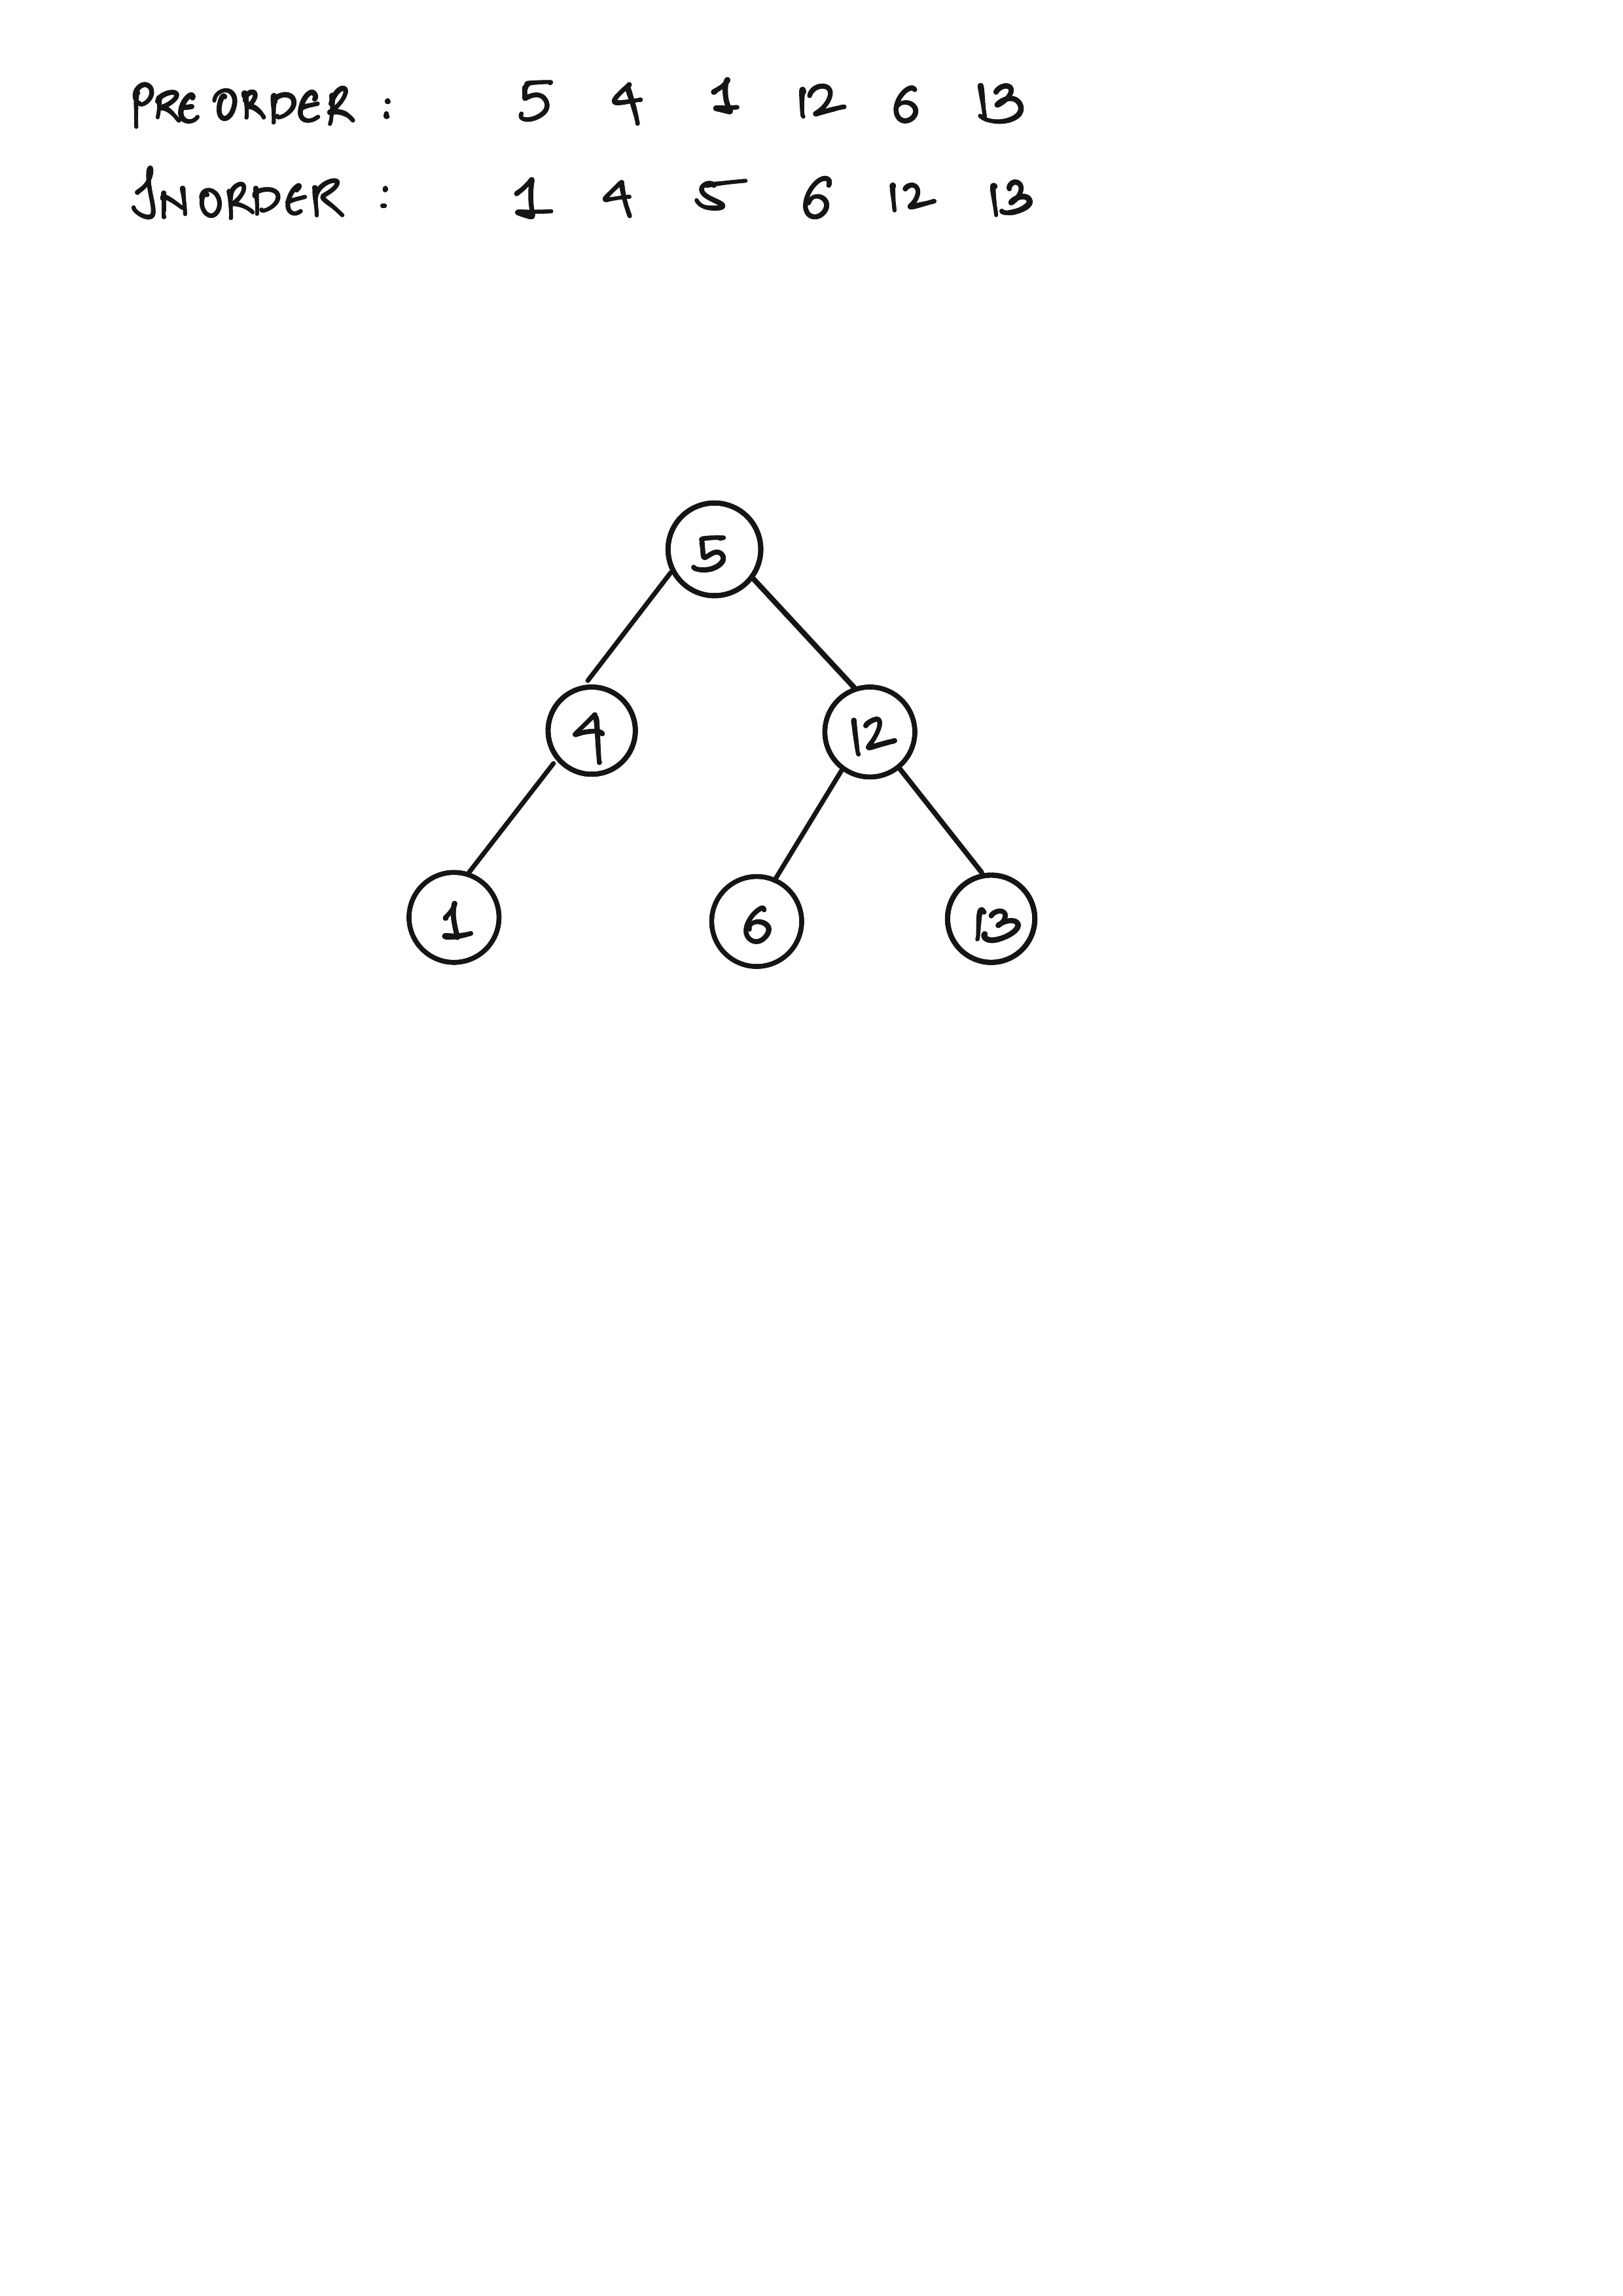 PREORDER : 5 4 1 12 6 13
INORDER : 1 4 5 6 12 13
5
4 12
1 6 13